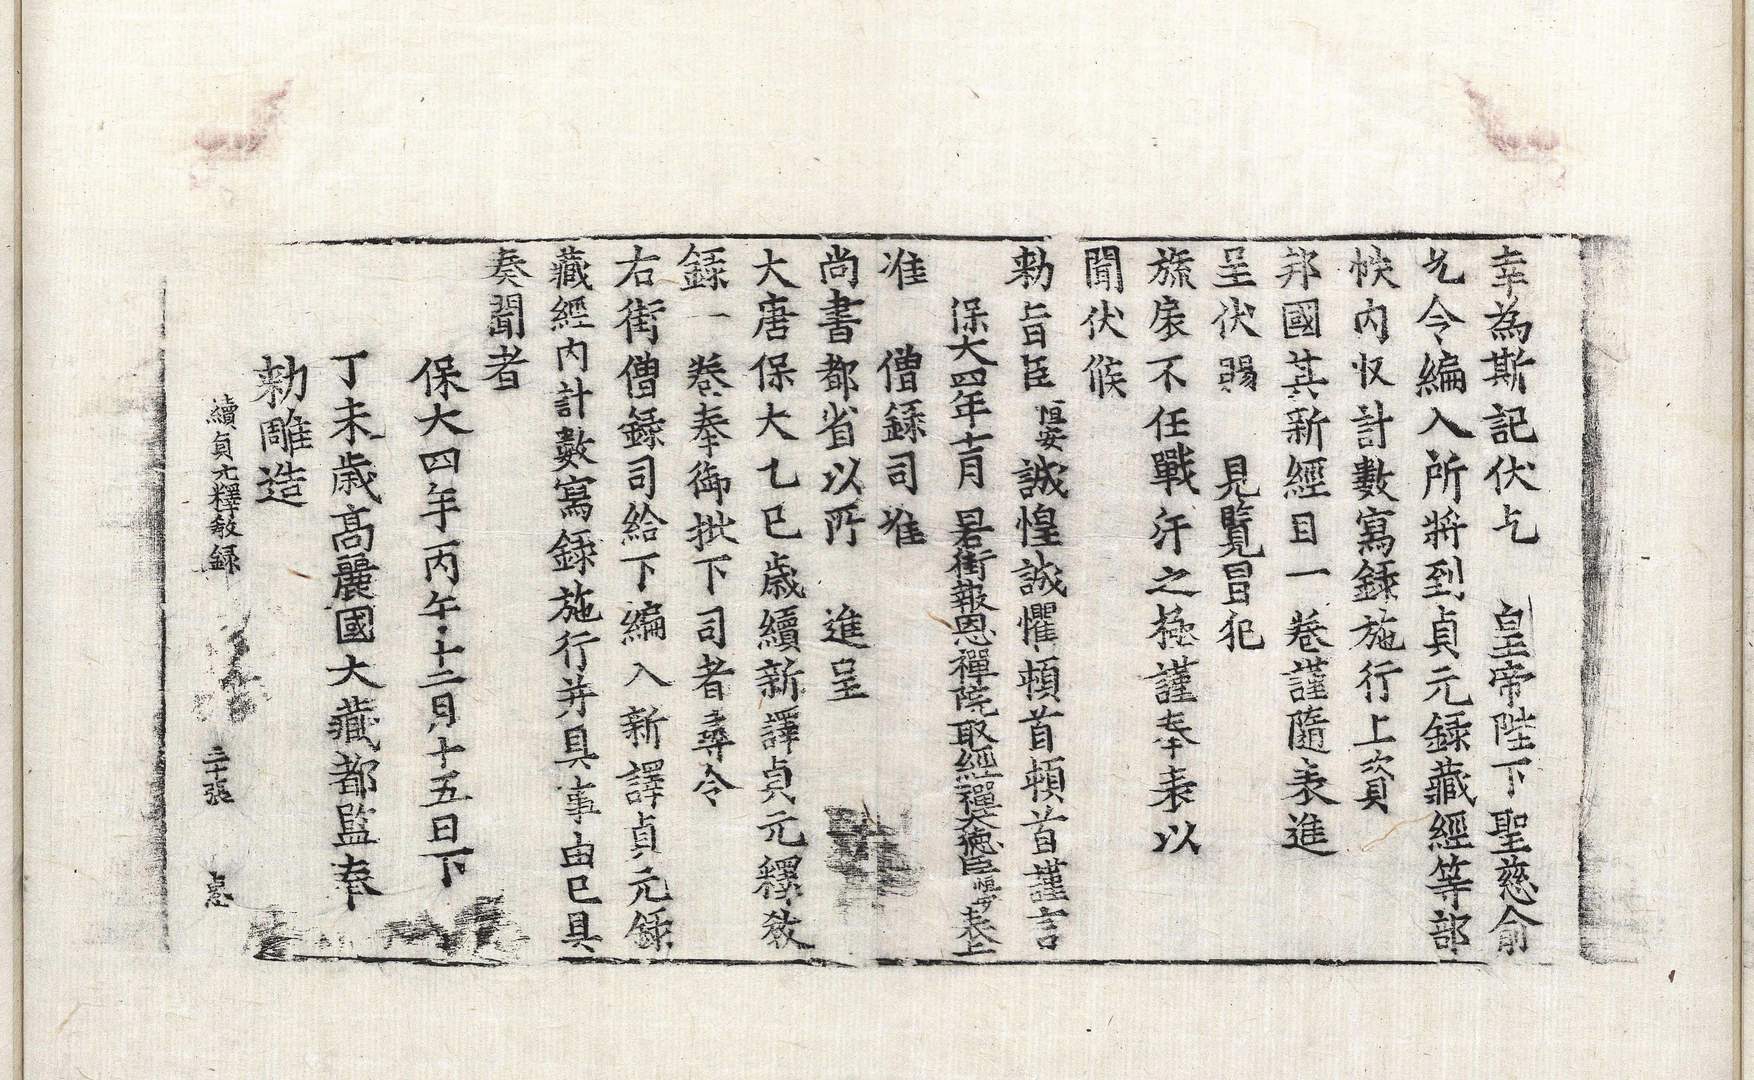 幸為斯記伏乞　皇帝陛下聖慈俞
乞令編入所將到貞元錄藏經等部
帙內収計數寫錄施行上資
邦國其新經目一卷謹隨表進
呈伏賜　見覽冒犯
旒扆不任戰汗之極謹奉表以
聞伏候
勅旨臣恒安誠惶誠懼頓首頓首謹言
保大四年十一月　日右街報恩禪院取經禪大德臣恒安表上
准　僧錄司准
尚書都省以所　進呈
大唐保大乙巳歲續新譯貞元釋教
錄一卷奉御批下司者尋令
右街僧錄司給下編入新譯貞元錄
藏經內計數寫錄施行并具事由已具
奏聞者
保大四年丙午十二月十五日下
丁未歲高麗國大藏都監奉
勅雕造
續貞元釋教錄　二十張